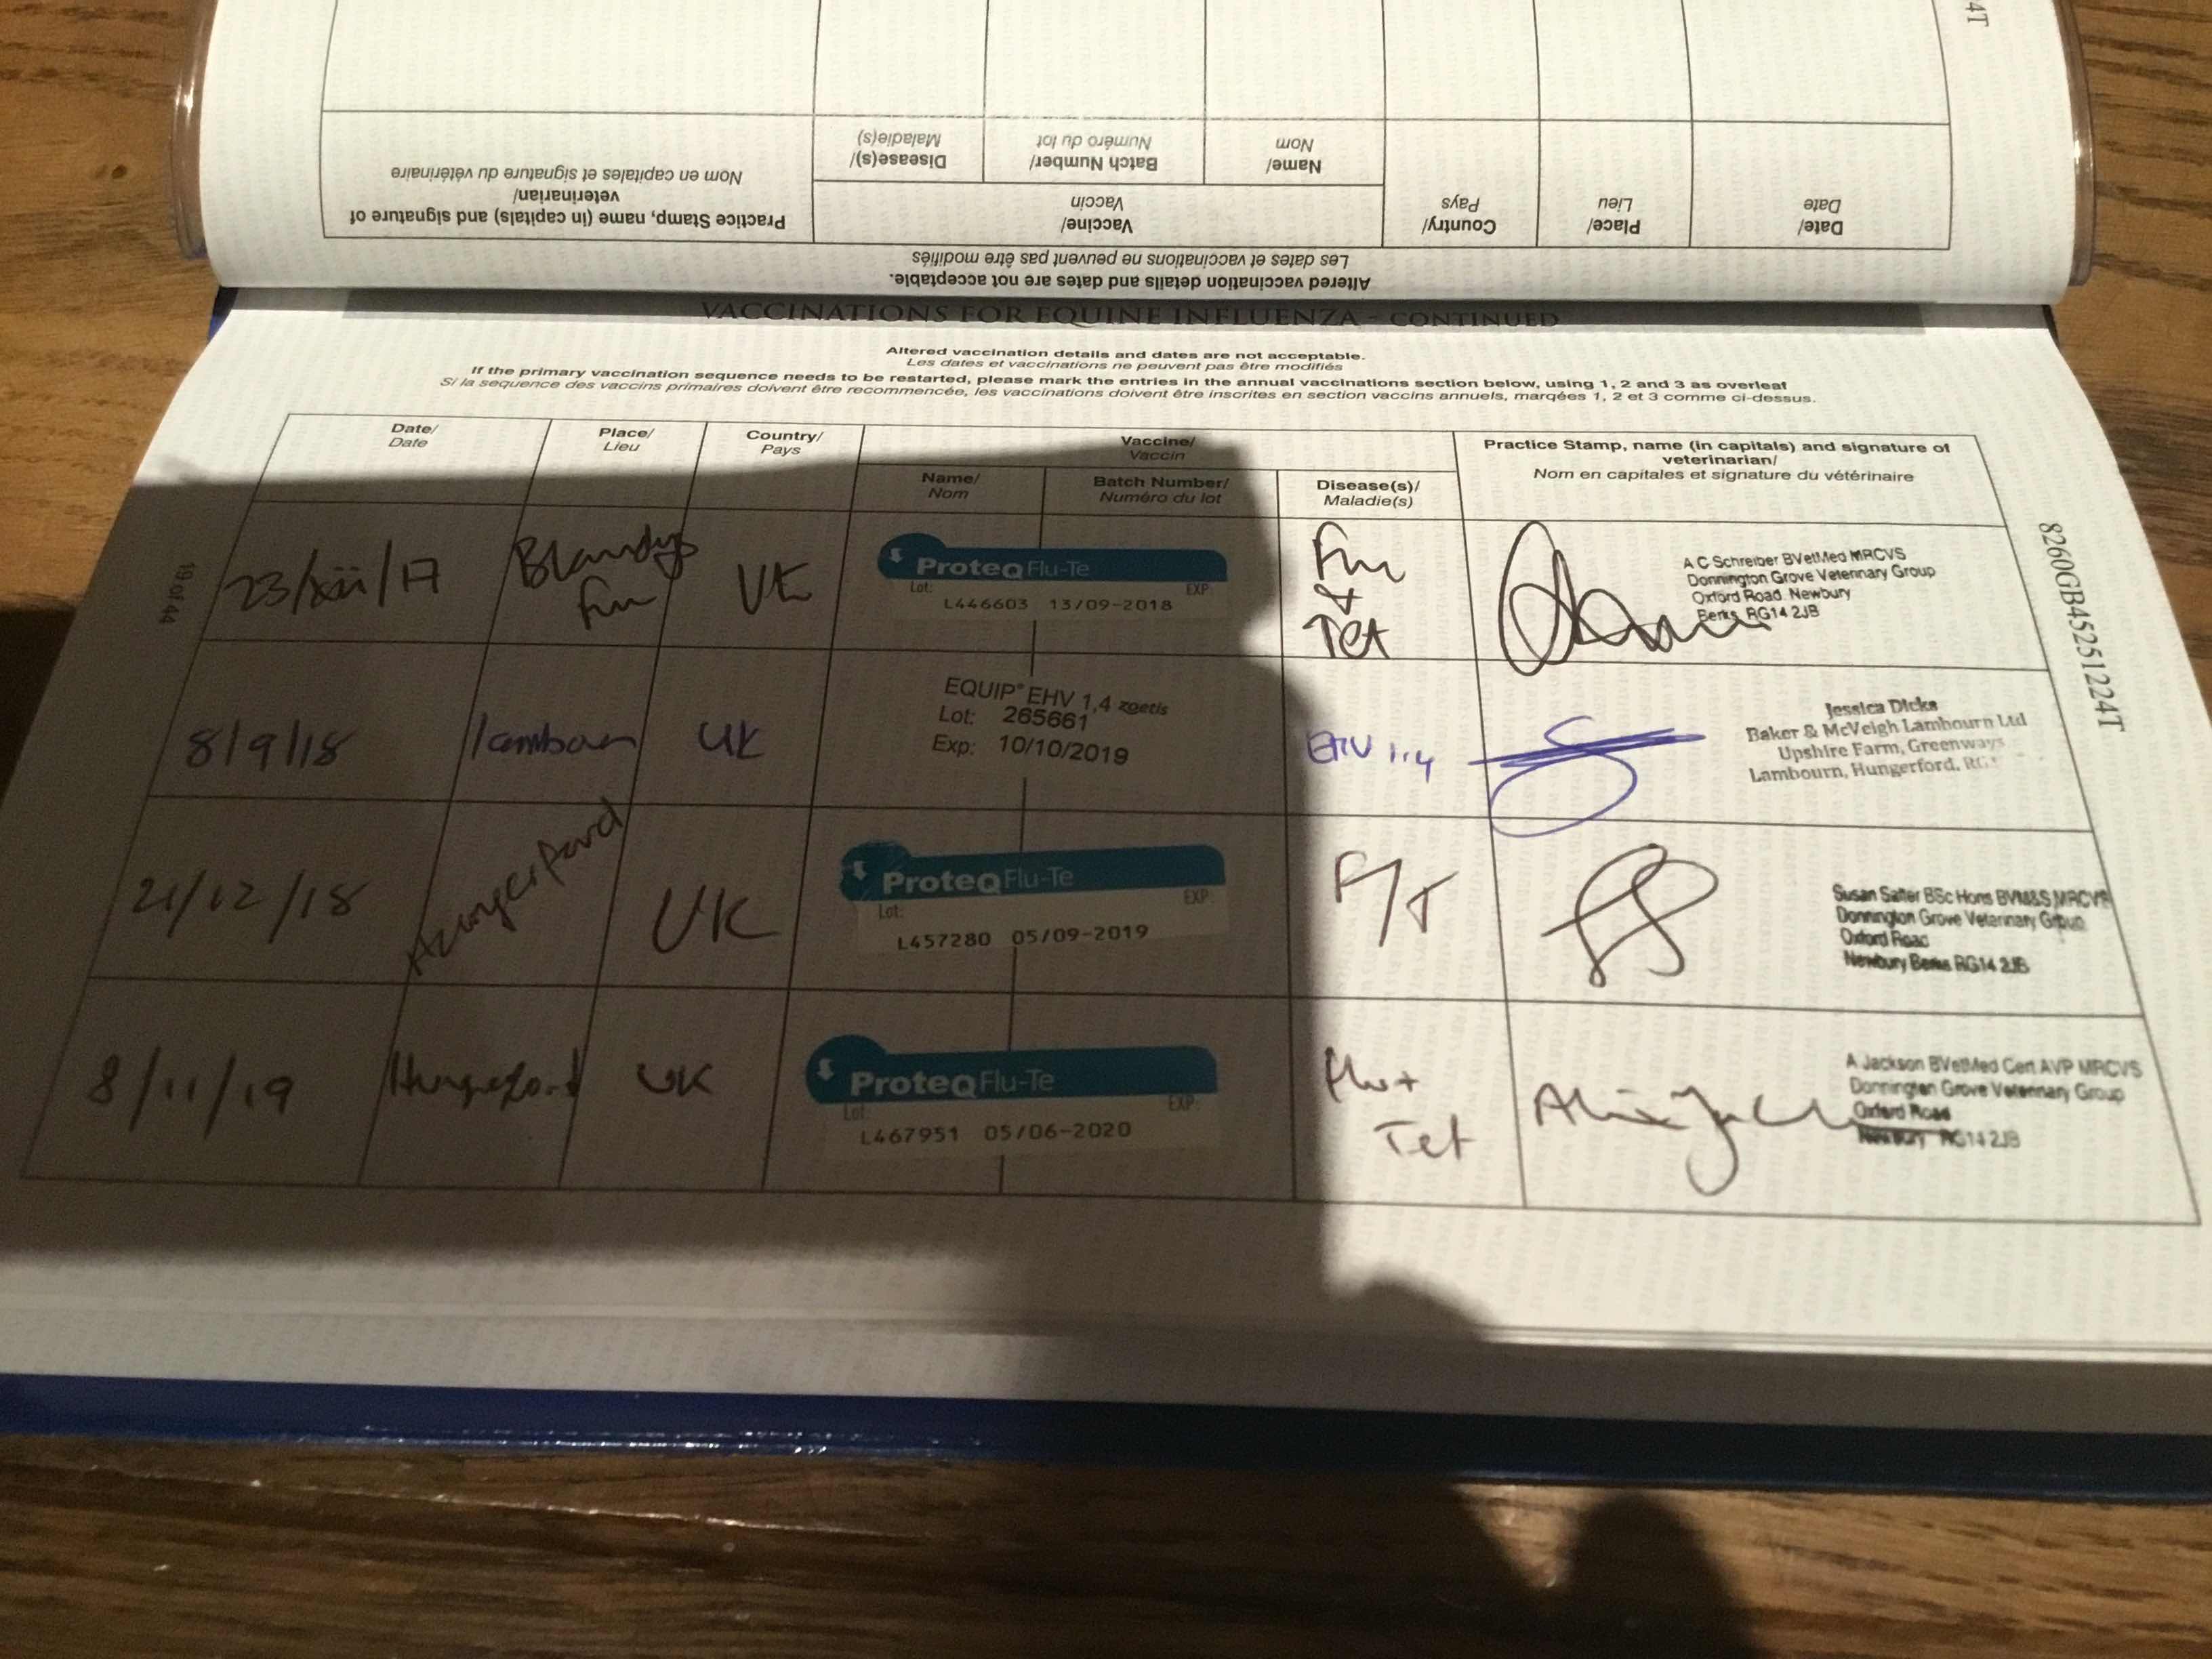 4T
Practice Stamp, name (in capitals) and signature of
veterinarian/
Nom en capitales et signature du vétérinaire
Vaccine/
Vaccin
Disease(s)/
Maladie(s)
Batch Number/
Numéro du lot
Name/
Nom
Country/
Pays
Place/
Lieu
Date/
Date
Altered vaccination details and dates are not acceptable.
Les dates et vaccinations ne peuvent pas être modifiés
VACCINATIONS FOR EQUINE INFLUENZA - CONTINUED
Altered vaccination details and dates are not acceptable.
Les dates et vaccinations ne peuvent pas être modifiés
If the primary vaccination sequence needs to be restarted, please mark the entries in the annual vaccinations section below, using 1, 2 and 3 as overleaf
Si la sequence des vaccins primaires doivent être recommencée, les vaccinations doivent être inscrites en section vaccins annuels, marqées 1, 2 et 3 comme ci-dessus.
Date/
Date
Place/
Lieu
Country/
Pays
Vaccine/
Vaccin
Name/
Nom
Batch Number/
Numéro du lot
Disease(s)/
Maladie(s)
Practice Stamp, name (in capitals) and signature of
veterinarian/
Nom en capitales et signature du vétérinaire
19 of 44
8260GB45251224T
23/xii/17
Blandys
UK
ProteqFlu-Te
Lot: EXP:
L446603 13/09-2018
Flu
&
Tet
A C Schreiber BVetMed MRCVS
Donnington Grove Veterinary Group
Oxford Road, Newbury
Berks, RG14 2JB
8/9/18
Lambourn
UK
EQUIP® EHV 1,4 zoetis
Lot: 265661
Exp: 10/10/2019
EHV 1,4
Jessica Dicks
Baker & McVeigh Lambourn Ltd
Upshire Farm, Greenways
Lambourn, Hungerford,
21/12/18
Hungerford
UK
ProteqFlu-Te
Lot: EXP:
L457280 05/09-2019
F/T
Susan Salter BSc Hons BVM&S MRCVS
Donnington Grove Veterinary Group
Oxford Road
Newbury Berks RG14 2JB
8/11/19
Hungerford
UK
ProteqFlu-Te
Lot: EXP:
L467951 05/06-2020
Flu +
Tet
A Jackson BVetMed Cert AVP MRCVS
Donnington Grove Veterinary Group
Oxford Road
Newbury RG14 2JB